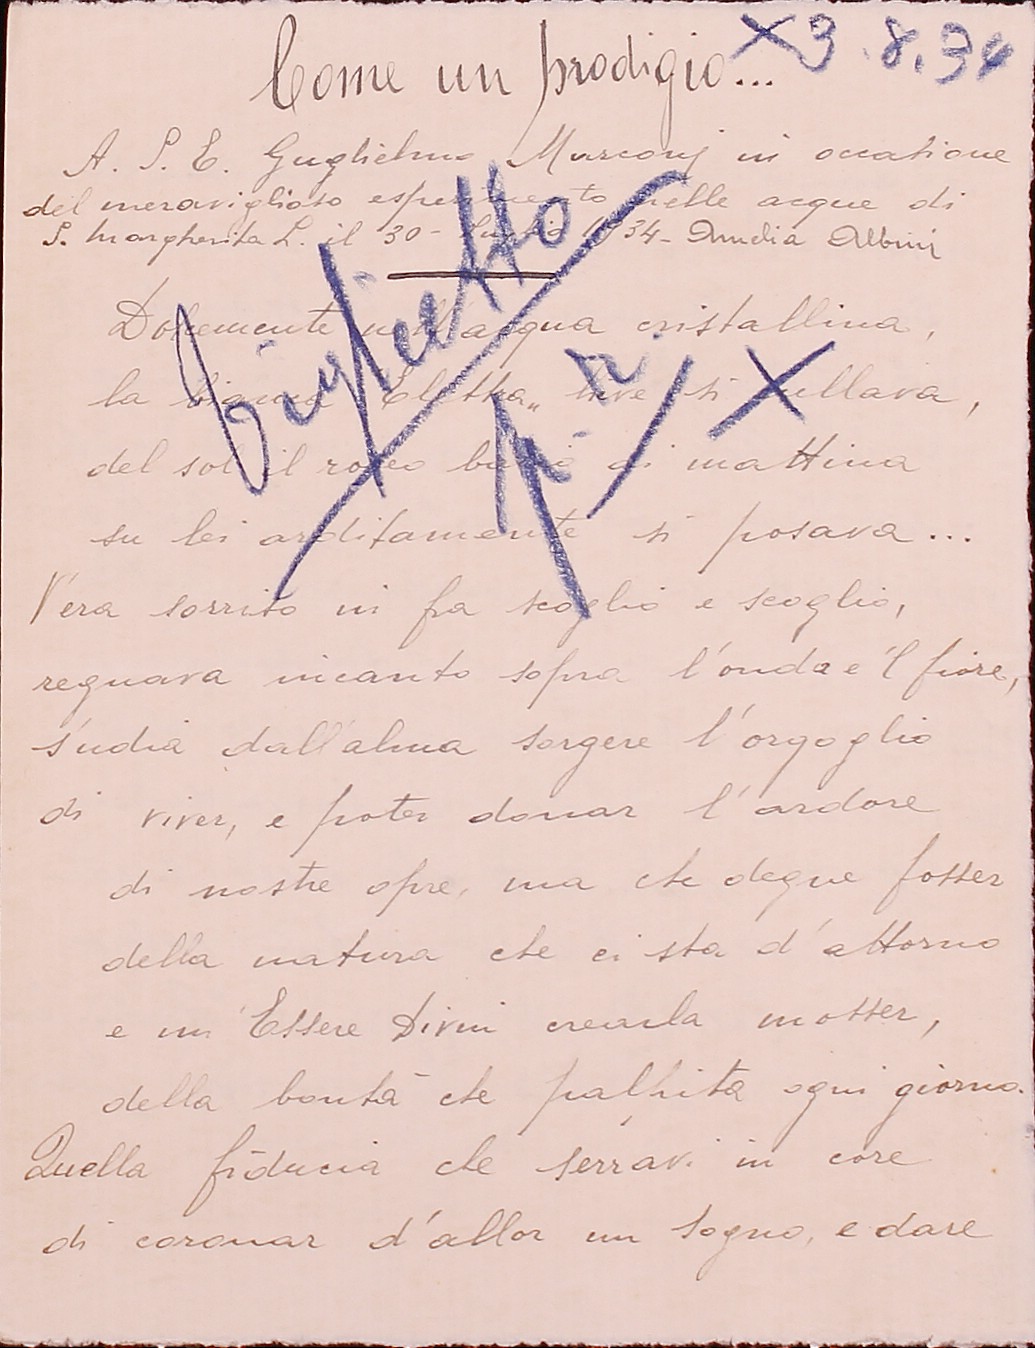 Come un prodigio...
X 3.8.34
A. S. E. Guglielmo Marconi in occasione
del meraviglioso esperimento nelle acque di
S. Margherita L. il 30 - Luglio 1934 - Amelia Albini
Biglietto
X
Dolcemente nell'acqua cristallina,
la bianca "Elettra" lieve si cullava,
del sol il roseo bacio di mattina
su lei arditamente si posava...
V'era sorriso in fra scoglio e scoglio,
regnava incanto sopra l'onda e 'l fiore,
s'udia dall'alma sorgere l'orgoglio
di viver, e poter donar l'ardore
di nostre opre, ma che degne fosser
della natura che ci sta d'attorno
e un Essere Divin crearla mosser,
della bontà che palpita ogni giorno.
Quella fiducia che serravi in core
di coronar d'allor un sogno, e dare